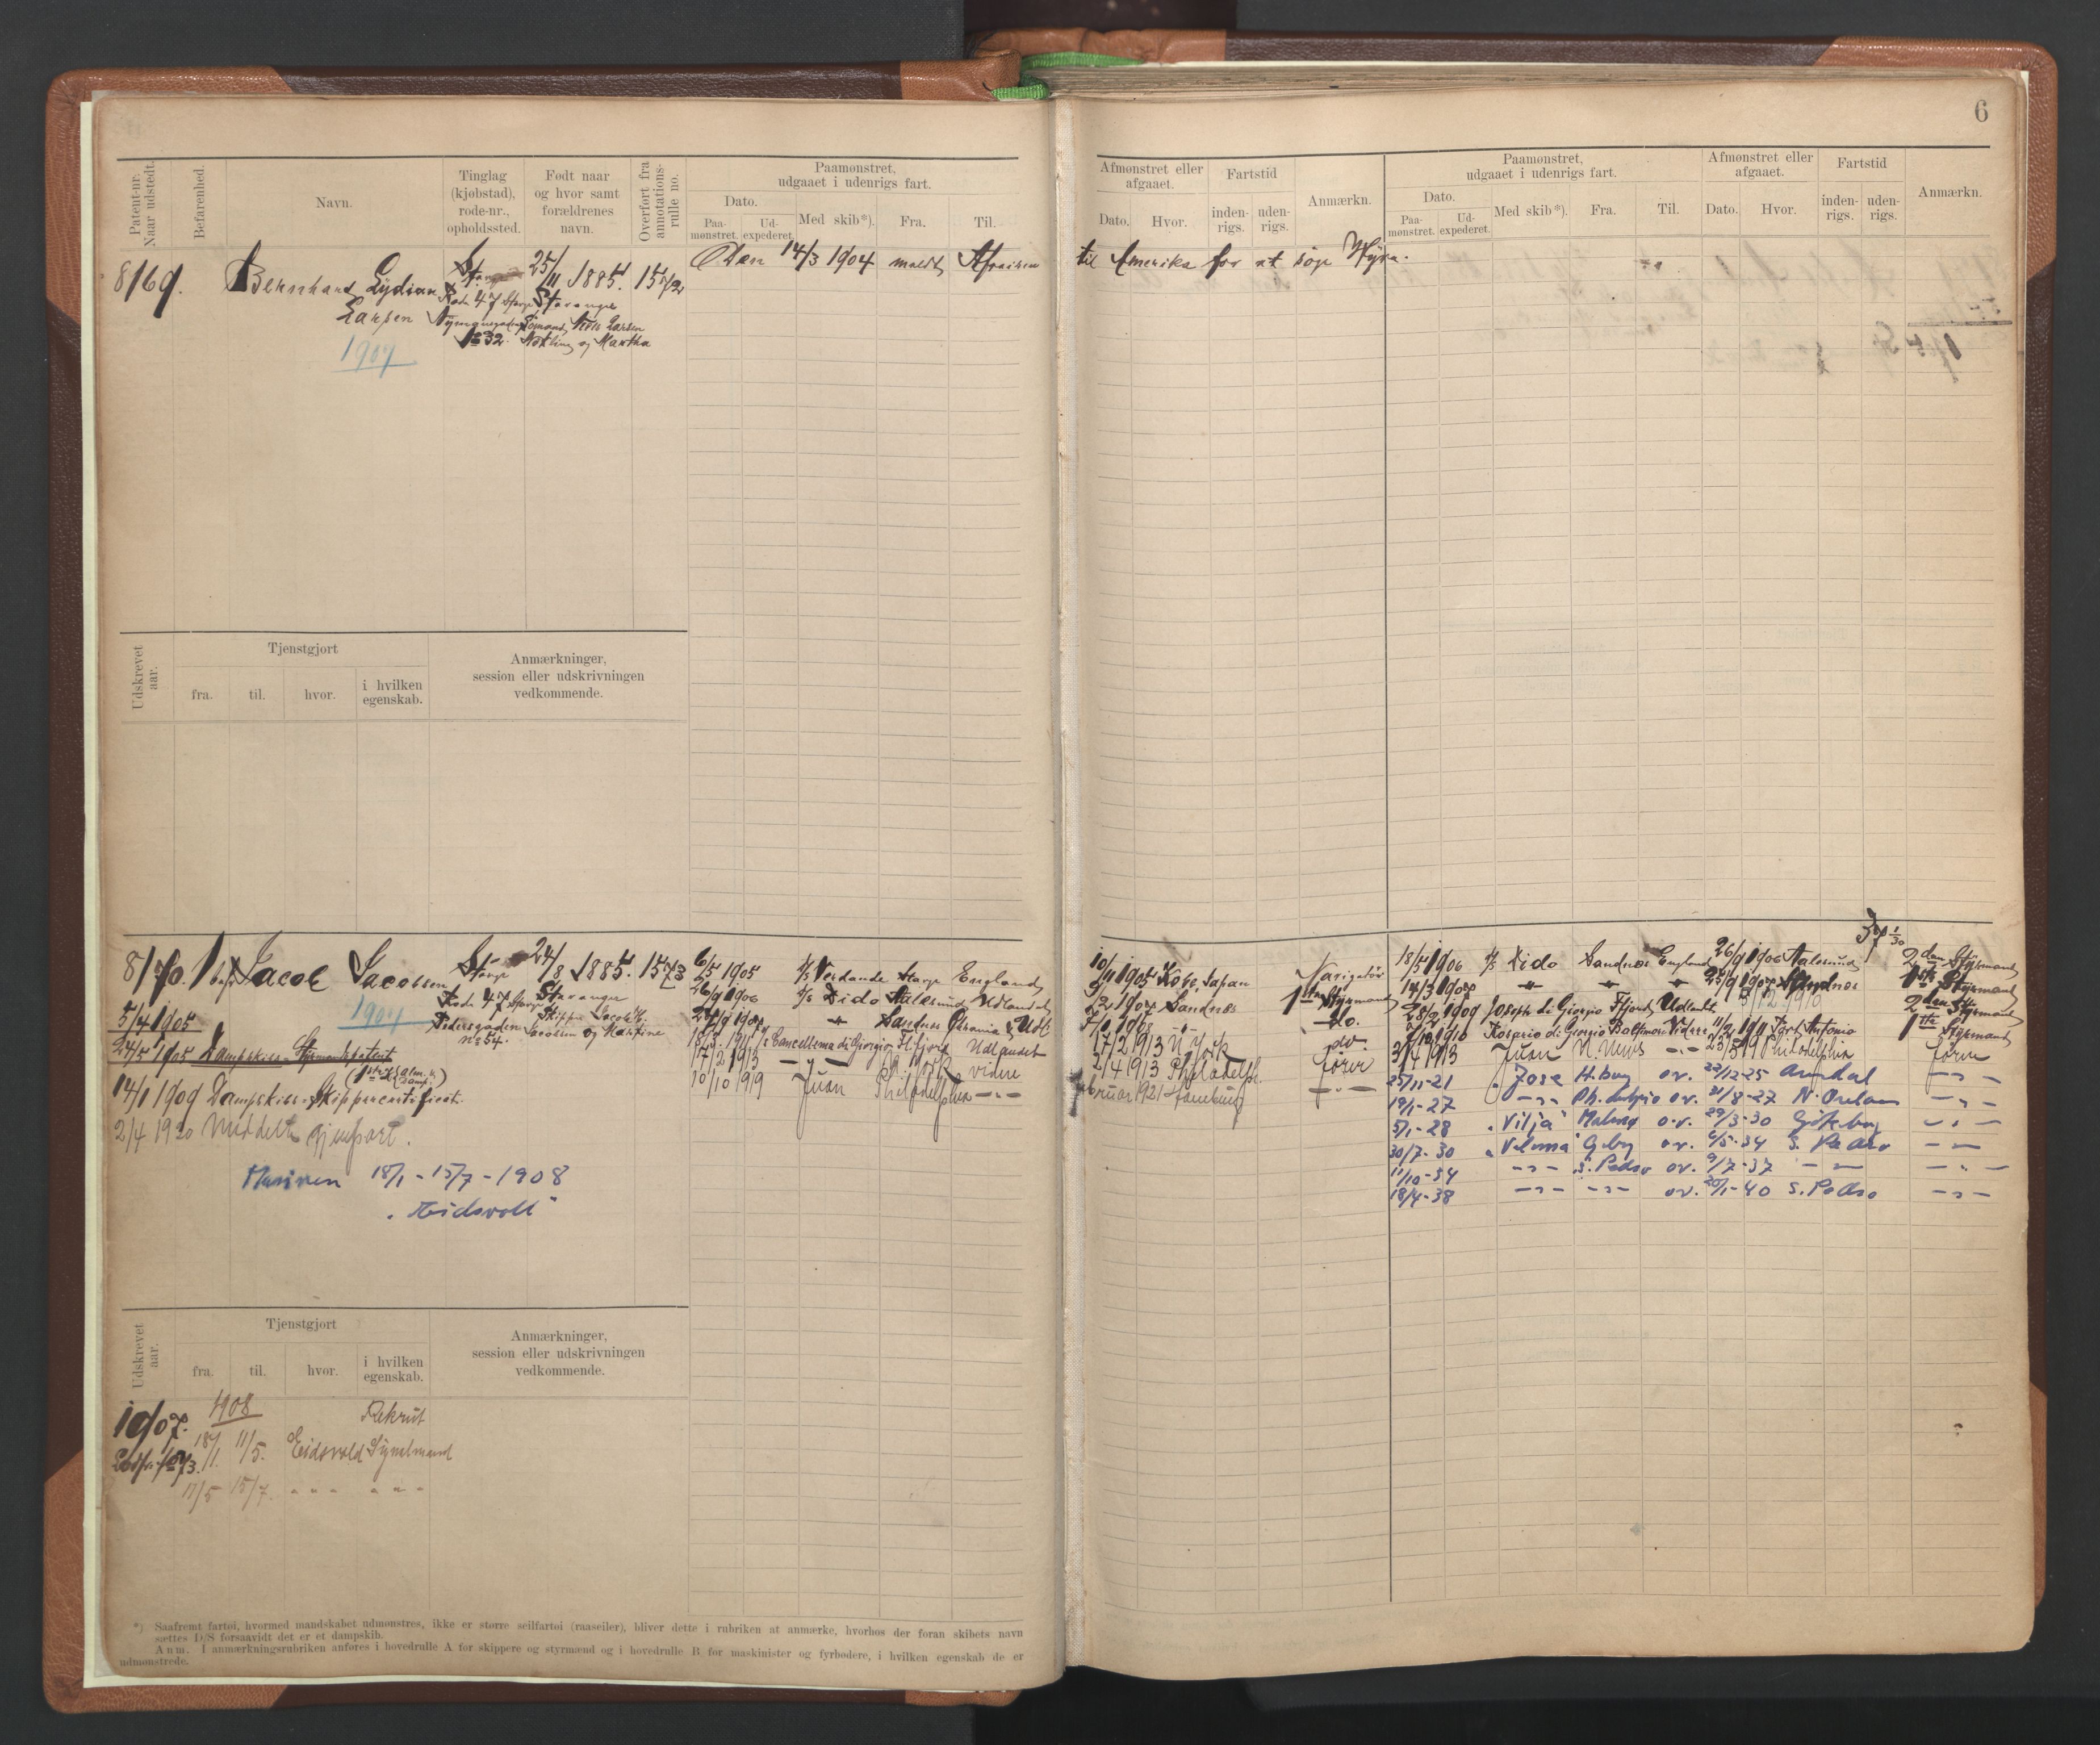 6
Patent-nr. Naar udstedt.
Befarenhed.
Navn.
Tinglag (kjøbstad), rode-nr., opholdssted.
Født naar og hvor samt forældrenes navn.
Overført fra annotations-rulle no.
Paamønstret, udgaaet i udenrigs fart.
Dato.
Paa-mønstret.
Ud-expederet.
Med skib*).
Fra.
Til.
Afmønstret eller afgaaet.
Dato.
Hvor.
Fartstid
inden-rigs.
uden-rigs.
Anmærkn.
Paamønstret, udgaaet i udenrigs fart.
Dato.
Paa-mønstret.
Ud-expederet.
Med skib*).
Fra.
Til.
Afmønstret eller afgaaet.
Dato.
Hvor.
Fartstid
inden-rigs.
uden-rigs.
Anmærkn.
8169. Bernhard Lydian 25/11 1885. 1572
Larsen
Rode 47 Stavanger
No 32. og Martha
1907
Den 14/3 1904 meldt Afreisen til Amerika for at søge Hyre.
Udskrevet aar.
Tjenstgjort
fra.
til.
hvor.
i hvilken egenskab.
Anmærkninger, session eller udskrivningen vedkommende.
8170. Jacob Jacobsen 24/8 1885. 1573
Rode 47 Stavanger
Pedersgaden Jacobsen og Martine
no 54.
1907
5/4 1905
24/5 1905 Dampskibs-Styrmandspatent
14/1 1909 Dampskibs-Skippercertificat
2/4 1920 Meddelt Gjenpart.
Marinen 18/1 - 15/7 - 1908
"Eidsvold"
6/5 1905 Verdande Stavgr England 10/11 1905 Kobe, Japan Navigatør
26/9 1906 D/S Dido Aalesund Udlandet 1907 Sandnes 1ste Styrmand
Sandnes do.
Udlandet 17/2 1913 N. York do.
17/2 1913 N. York videre 2/4 1913 Philadelph. fører
10/10 1919 Juan Philadelphia februar 1921 Hamburg
37 1/30
18/5 1906 D/S Dido Sandnes England 26/9 1906 Aalesund 2den Styrmand
14/3 1907 Sandnes 1ste Styrmand
28/2 1909 Joseph di Giorgio Ffjord Udlandet 2den Styrmand
Rosario di Giorgio Baltimore Videre 11/2 1911 Port Antonio 1ste Styrmand
3/4 1913 Juan N. News Philadelphia fører
25/11-21 Jose H.burg o.v. 22/12-25 Arendal
19/1-27 o.v. 31/8-27 N. Orelans
5/1-28 "Vilja" Malmø o.v. 29/3-30 Gøteborg
30/7-30 "Velma" G.bg o.v. 6/5-34 S. Pedro
11/10-34 S. Pedro o.v. 9/7-37
18/4-38 o.v. 20/1-40 S. Pedro
Udskrevet aar.
Tjenstgjort
fra.
til.
hvor.
i hvilken egenskab.
Anmærkninger, session eller udskrivningen vedkommende.
1907. 1908 Rekrut
Lodfr. 1573. 18/1. 11/5. Eidsvold
11/5 15/7. " " " " " "
*) Saafremt fartøi, hvormed mandskabet udmønstres, ikke er større seilfartøi (raaseiler), bliver dette i rubriken at anmærke, hvorhos der foran skibets navn
sættes D/S forsaavidt det er et dampskib.
Anm. I anmærkningsrubriken anføres i hovedrulle A for skippere og styrmænd og i hovedrulle B for maskinister og fyrbødere, i hvilken egenskab de er
udmønstrede.